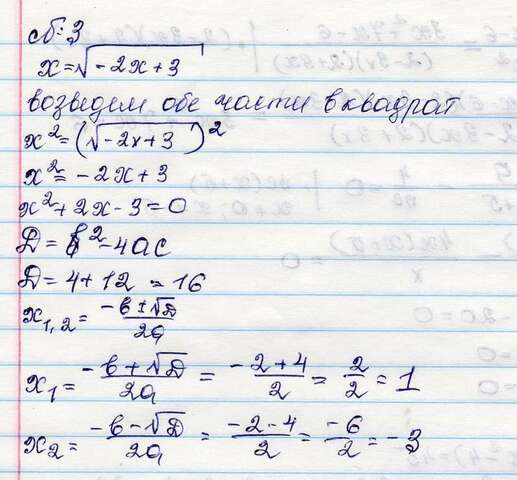 №3
x = √(-2x + 3)
возведем обе части в квадрат
x² = (√(-2x + 3))²
x² = -2x + 3
x² + 2x - 3 = 0
D = b² - 4ac
D = 4 + 12 = 16
x₁,₂ = (-b ± √D)/2a
x₁ = (-b + √D)/2a = (-2 + 4)/2 = 2/2 = 1
x₂ = (-b - √D)/2a = (-2 - 4)/2 = -6/2 = -3